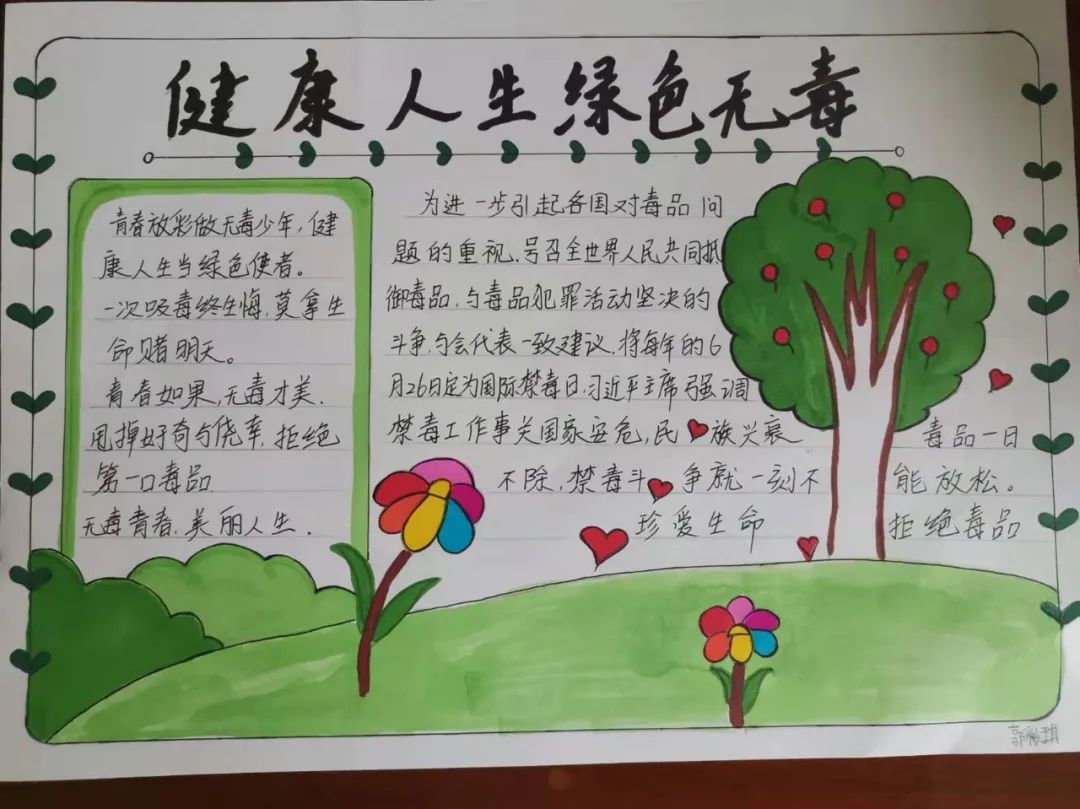 健康人生绿色无毒
青春放彩做无毒少年,健
康人生当绿色使者。
一次吸毒终生悔,莫拿生
命赌明天。
青春如果,无毒才美.
甩掉好奇与侥幸,拒绝
第一口毒品.
无毒青春.美丽人生.
为进一步引起各国对毒品问
题的重视.号召全世界人民共同抵
御毒品,与毒品犯罪活动坚决的
斗争,与会代表一致建议.将每年的6
月26日定为国际禁毒日.习近平主席强调
禁毒工作事关国家安危,民族兴衰 毒品一日
不除,禁毒斗争就一刻不能放松。
珍爱生命 拒绝毒品